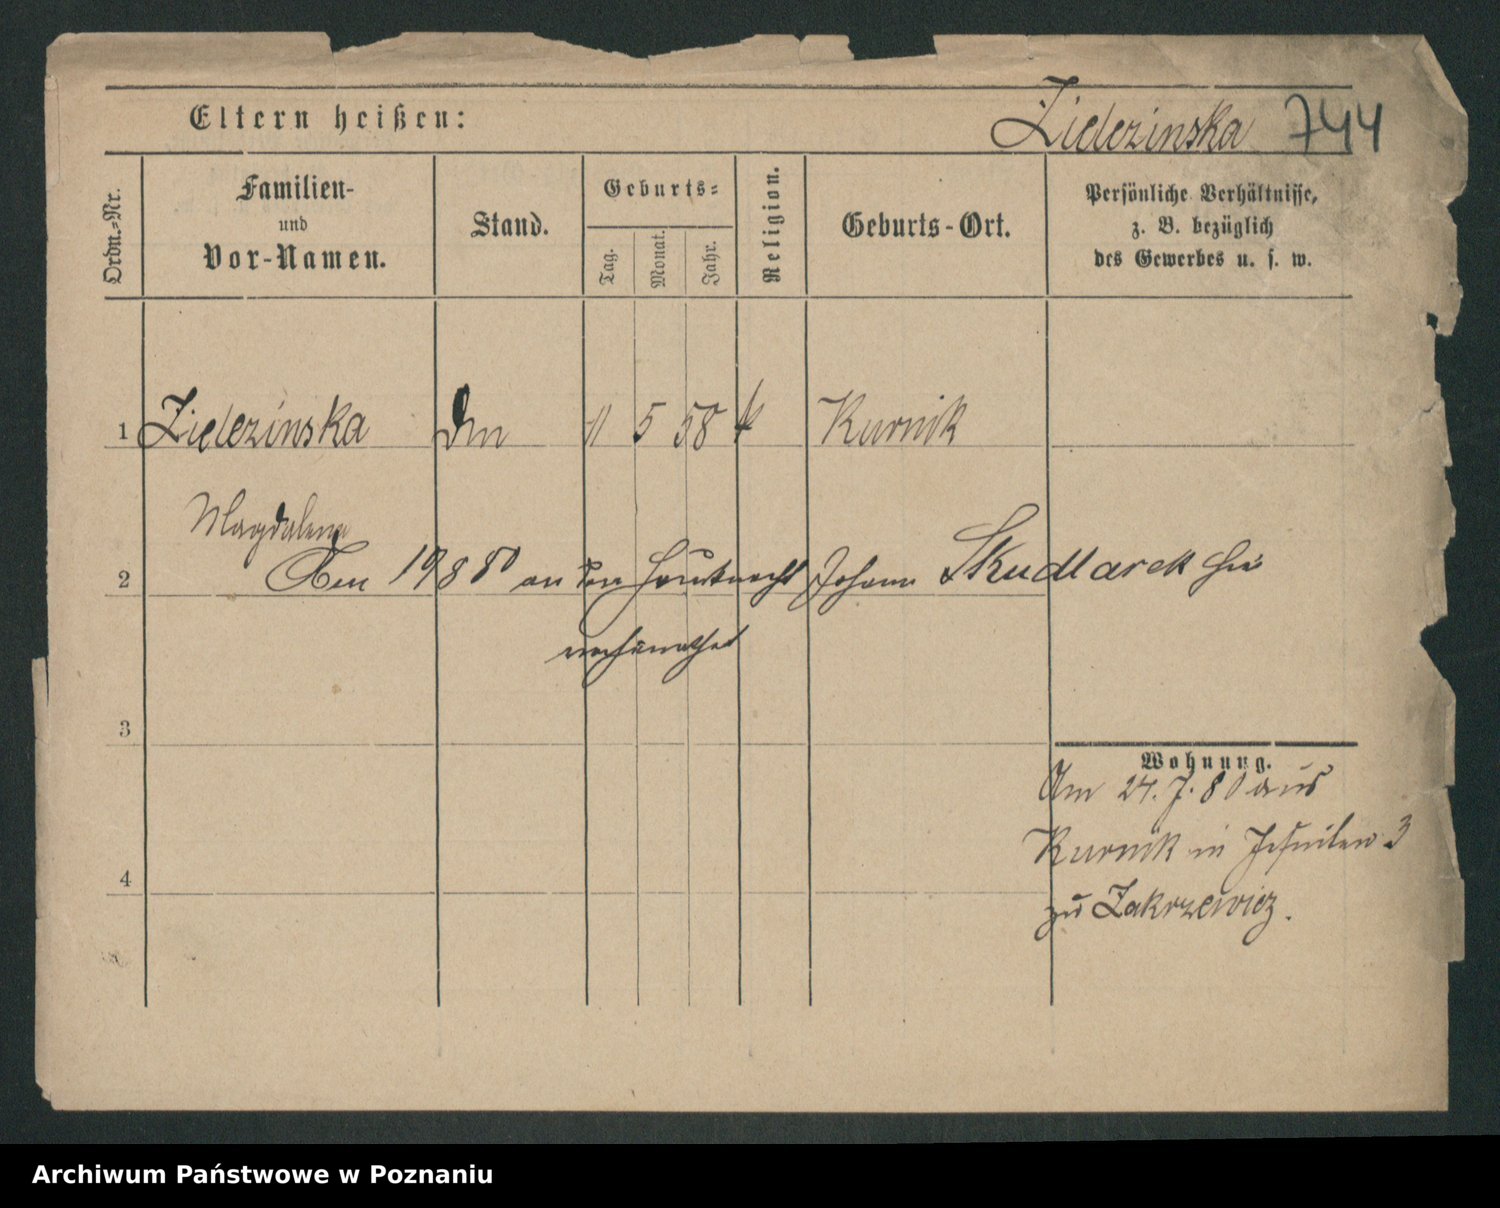 Eltern heißen:
Ziełezinska 744
Ordn.-Nr.
Familien-
und
Vor-Namen.
Stand.
Geburts-
Tag.
Monat.
Jahr.
Religion.
Geburts-Ort.
Persönliche Verhältnisse,
z. B. bezüglich
des Gewerbes u. s. w.
1 Zielezinska 11 5 58 k Kurnik
Magdalena
2 Am 19 8 80 an den Hausknecht Johann Skudlarek hier
verheirathet
3
Wohnung.
Am 24. 7. 80 aus
Kurnik in Jesuiten 3
4
zu Zakrzewicz.
Archiwum Państwowe w Poznaniu